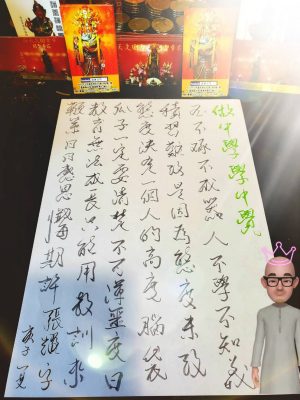 做中學 學中覺
玉不琢不成器 人不學不知義
積習難改是因為態度未改
態度決定一個人的高度 腦袋
瓜子一定要清楚 不可渾噩度日
教育無法成長只能用教訓來
日日 思 期許張繼字
庚子